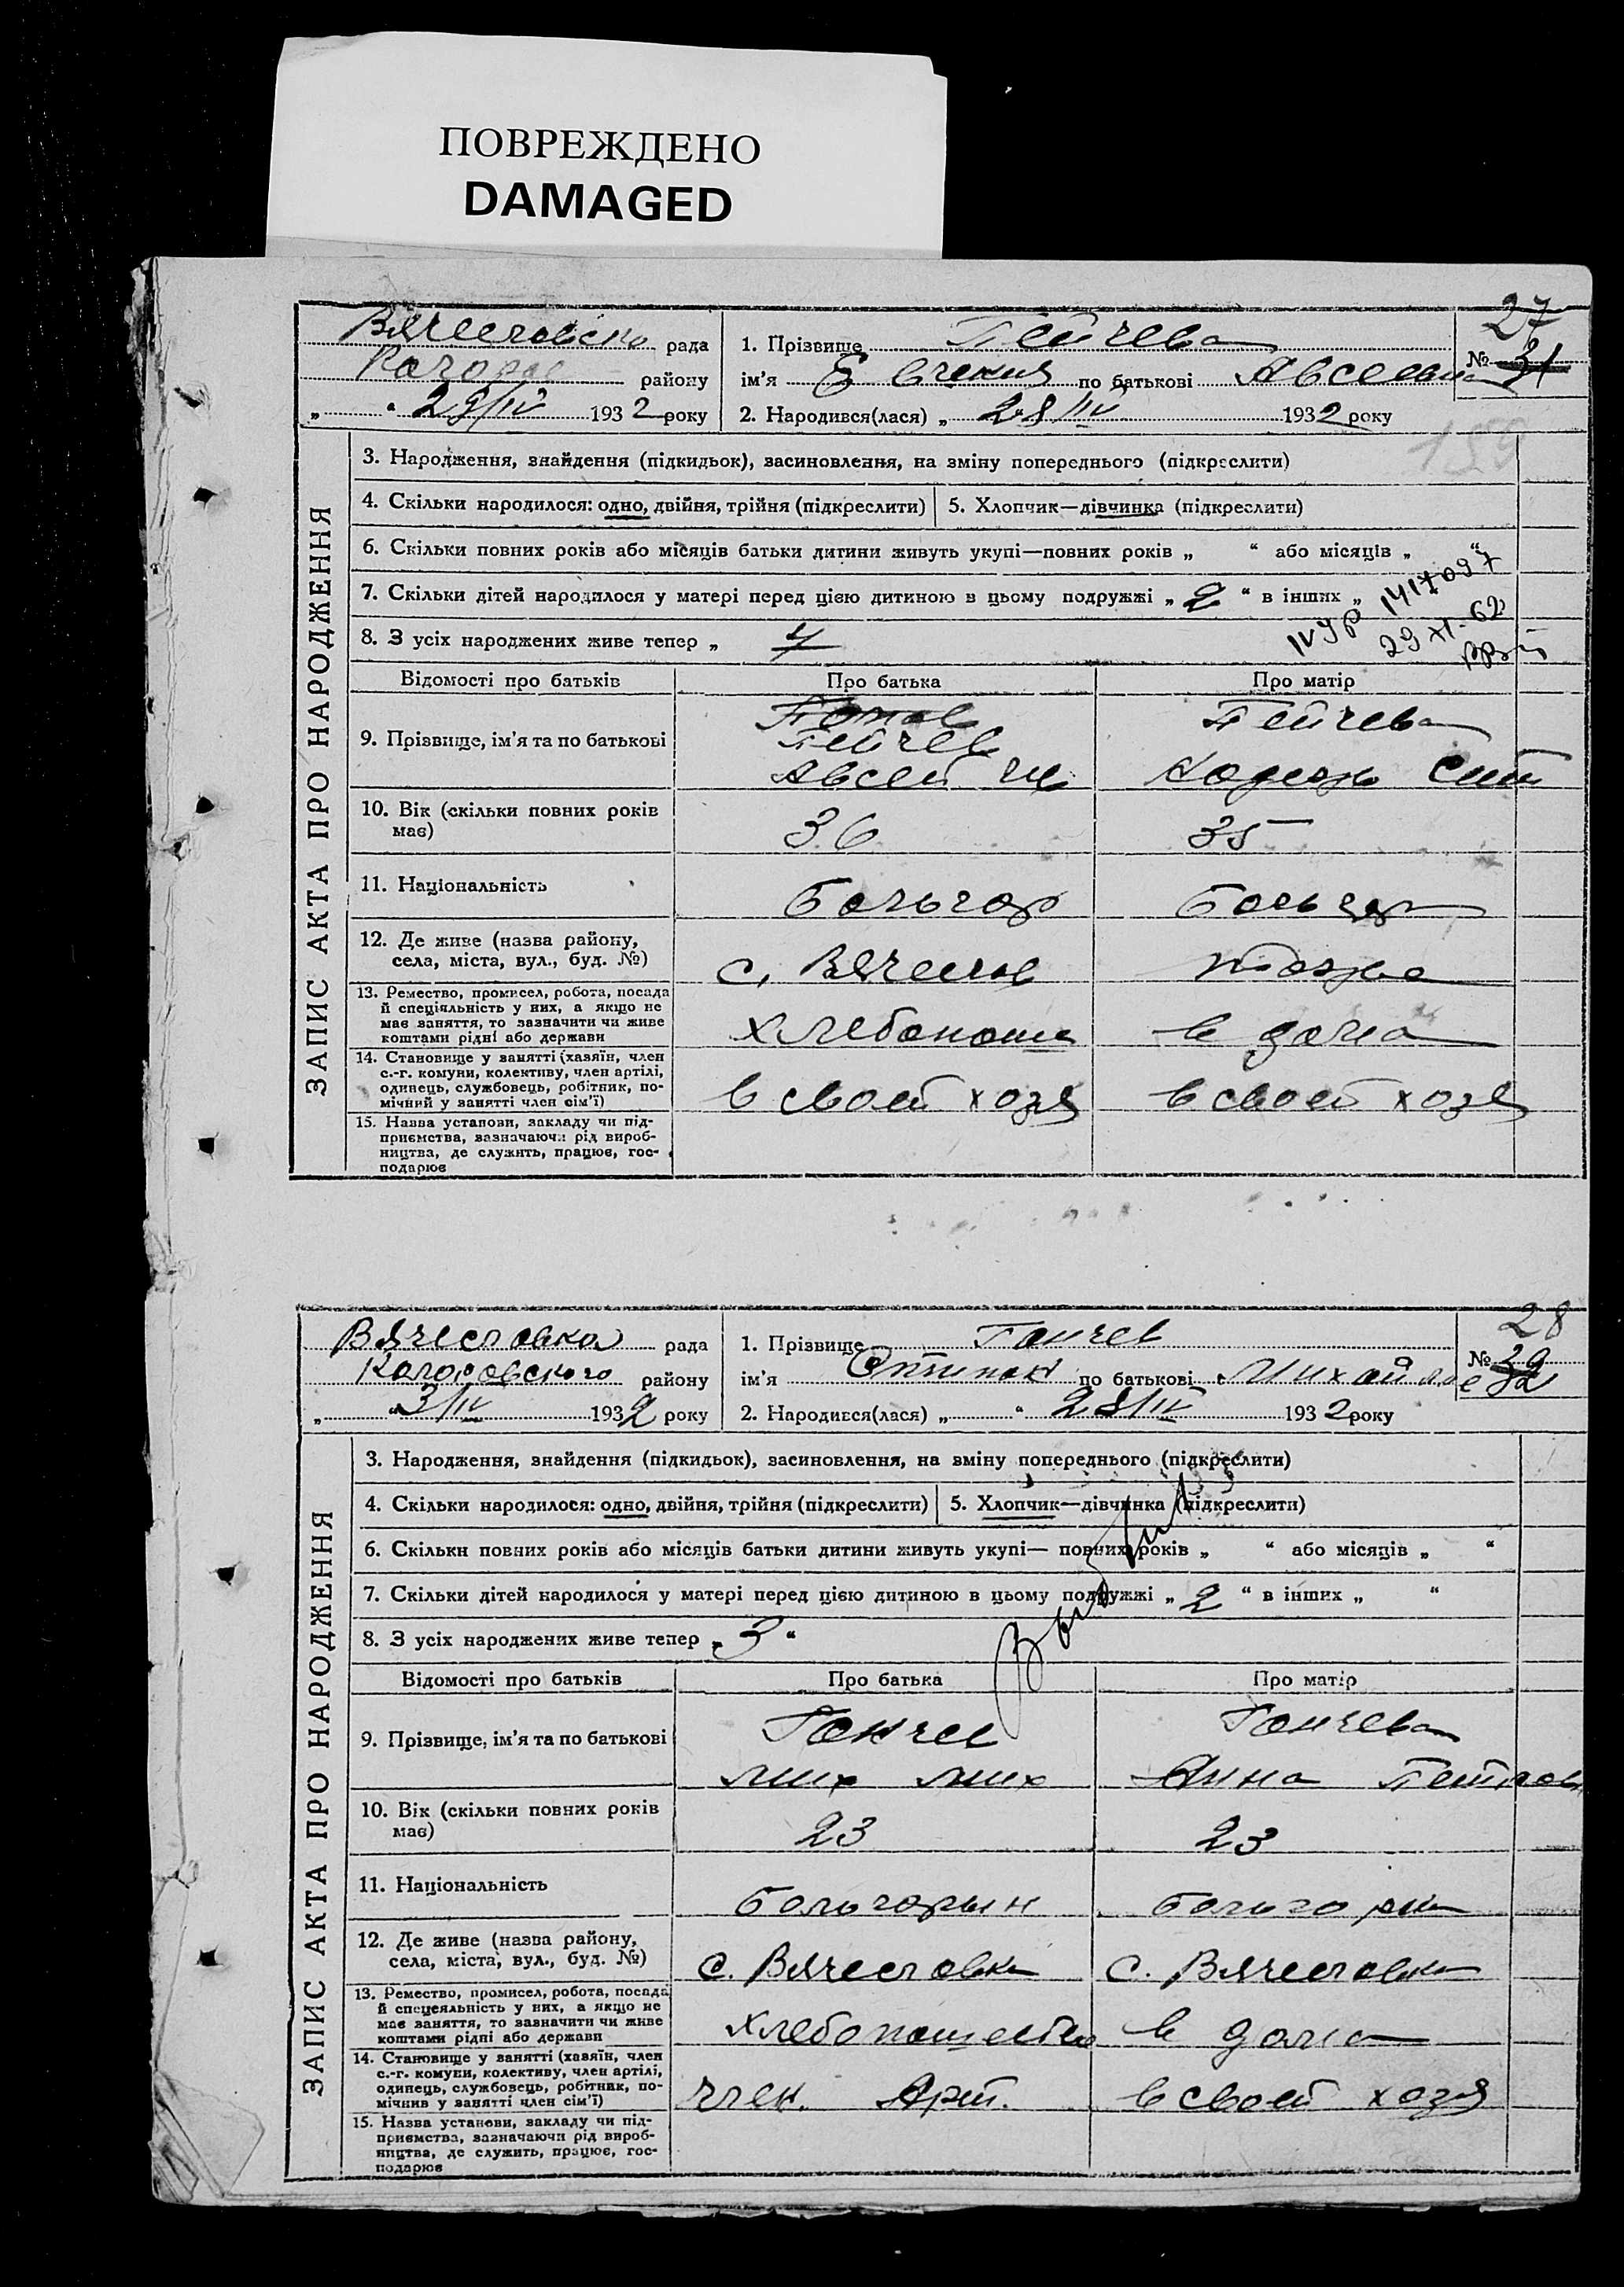 ПОВРЕЖДЕНО
DAMAGED
27
Вячеславско рада
району
„ “ 29/IV 1932 року
1. Прізвище Пейчева
№ 31
ім’я по батькові
2. Народився(лася) „ 28/IV 1932 року
ЗАПИС АКТА ПРО НАРОДЖЕННЯ
3. Народження, знайдення (підкидьок), засиновлення, на зміну попереднього (підкреслити)
4. Скільки народилося: одно, двійня, трійня (підкреслити)
5. Хлопчик—дівчинка (підкреслити)
6. Скільки повних років або місяців батьки дитини живуть укупі—повних років „ “ або місяців „ “
7. Скільки дітей народилося у матері перед цією дитиною в цьому подружжі „ 2 “ в інших „
8. З усіх народжених живе тепер „
1417097
29 XI-62
Відомості про батьків
Про батька
Про матір
9. Прізвище, ім’я та по батькові
Пейчев
Авсей
Пейчева
10. Вік (скільки повних років має)
36
35
11. Національність
Больгар
12. Де живе (назва району, села, міста, вул., буд. №)
с. Вячеслав
тоже
13. Ремество, промисел, робота, посада й спеціяльність у них, а якщо не має заняття, то зазначити чи живе коштами рідні або держави
хлебопаше
в дома
14. Становище у занятті (хазяїн, член с.-г. комуни, колективу, член артілі, одинець, службовець, робітник, помічний у занятті член сім’ї)
в своей хозя
в своей хозя
15. Назва установи, закладу чи підприємства, зазначаючи рід виробництва, де служить, працює, господарює
28
Вячесловка рада
району
„ “ 3/IV 1932 року
1. Прізвище Ганчев
№ 32
ім’я по батькові Михайлов
2. Народився(лася) „ “ 28/IV 1932 року
ЗАПИС АКТА ПРО НАРОДЖЕННЯ
3. Народження, знайдення (підкидьок), засиновлення, на зміну попереднього (підкреслити)
4. Скільки народилося: одно, двійня, трійня (підкреслити)
5. Хлопчик—дівчинка (підкреслити)
6. Скільки повних років або місяців батьки дитини живуть укупі— повних років „ “ або місяців „ “
7. Скільки дітей народилося у матері перед цією дитиною в цьому подружжі „ 2 “ в інших „ “
8. З усіх народжених живе тепер „ 3 “
Відомості про батьків
Про батька
Про матір
9. Прізвище, ім’я та по батькові
Ганчев
мих мих
Ганчева
Анна Петров
10. Вік (скільки повних років має)
23
23
11. Національність
Больгарын
Больгарка
12. Де живе (назва району, села, міста, вул., буд. №)
с. Вячесловка
с. Вячесловка
13. Ремество, промисел, робота, посада й спецеяльність у них, а якщо не має заняття, то зазначити чи живе коштами рідні або держави
хлебопашество
в дома
14. Становище у занятті (хазяїн, член с.-г. комуни, колективу, член артілі, одинець, службовець, робітник, помічнив у занятті член сім’ї)
член. Арт.
в своей хозя
15. Назва установи, закладу чи підприємства, зазначаючи рід виробництва, де служить, працює, господарює